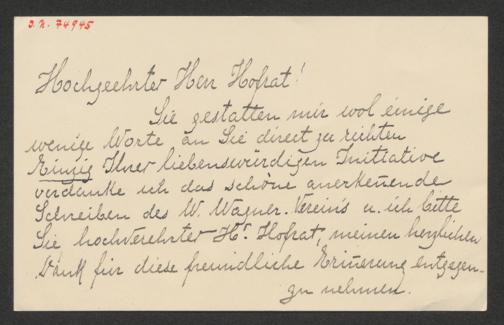 J.N. 74945
Hochgeehrter Herr Hofrat!
Sie gestatten mir wol einige
wenige Worte an Sie direct zu richten
Einzig Ihrer liebenswürdigen Initiative
verdanke ich das schöne anerkennende
Schreiben des W. Wagner-Verein's u. ich bitte
Sie hochverehrter Hr. Hofrat, meinen herzlichen
Dank für diese freundliche Erinnerung entgegen-
zu nehmen.